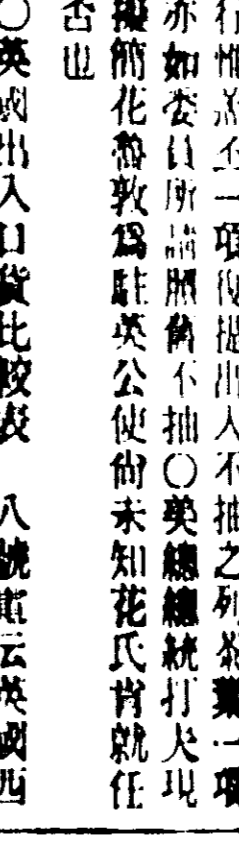 行惟善不一項復提出入不抽之列茶葉一項
亦如委員所請照舊不抽〇美總統打夫現
擬簡花爾敦為駐英公使尚未知花氏肯就任
否也
〇英國出入口貨比較表 八號電云英國西